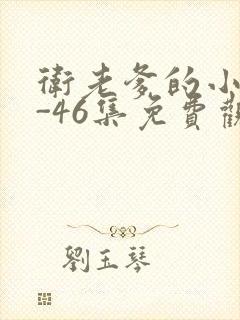 衛老爹的小
-46集免費觀
劉玉琴